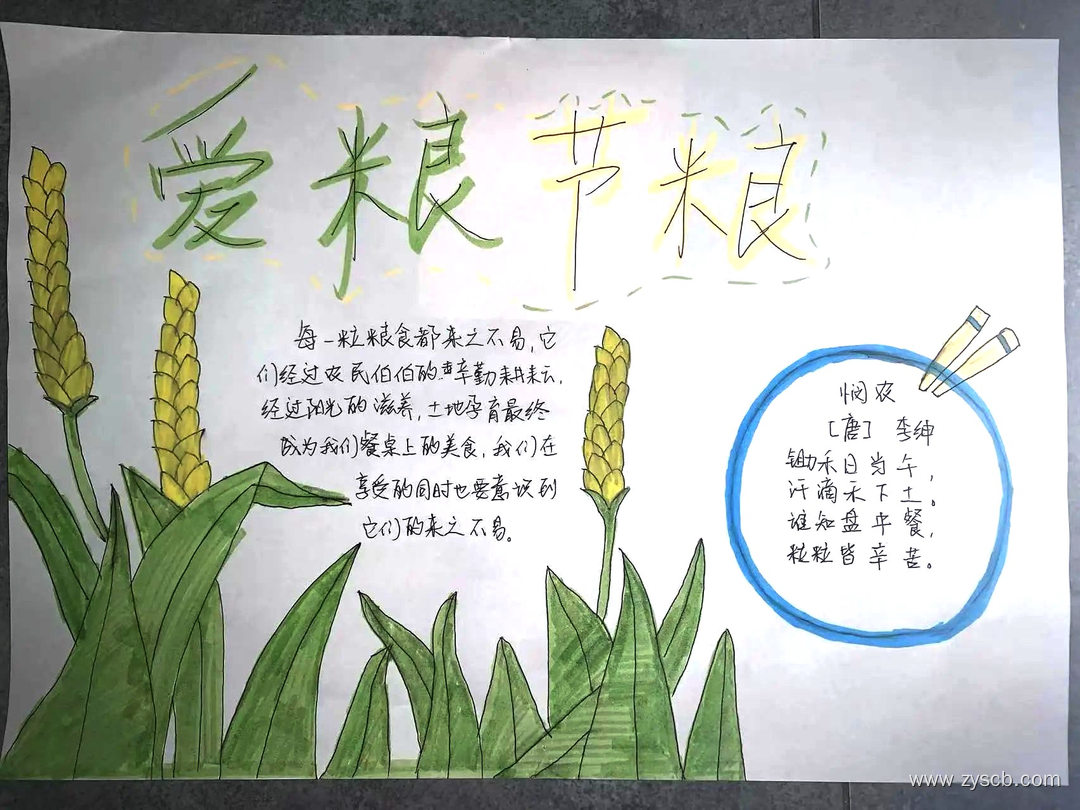 爱粮节粮
每一粒粮食都来之不易,它
们经过农民伯伯的辛勤耕耘,
经过阳光的滋养,土地孕育最终
成为我们餐桌上的美食,我们在
享受的同时也要意识到
它们的来之不易。
悯农
[唐] 李绅
锄禾日当午,
汗滴禾下土。
谁知盘中餐,
粒粒皆辛苦。
www.zyscb.com